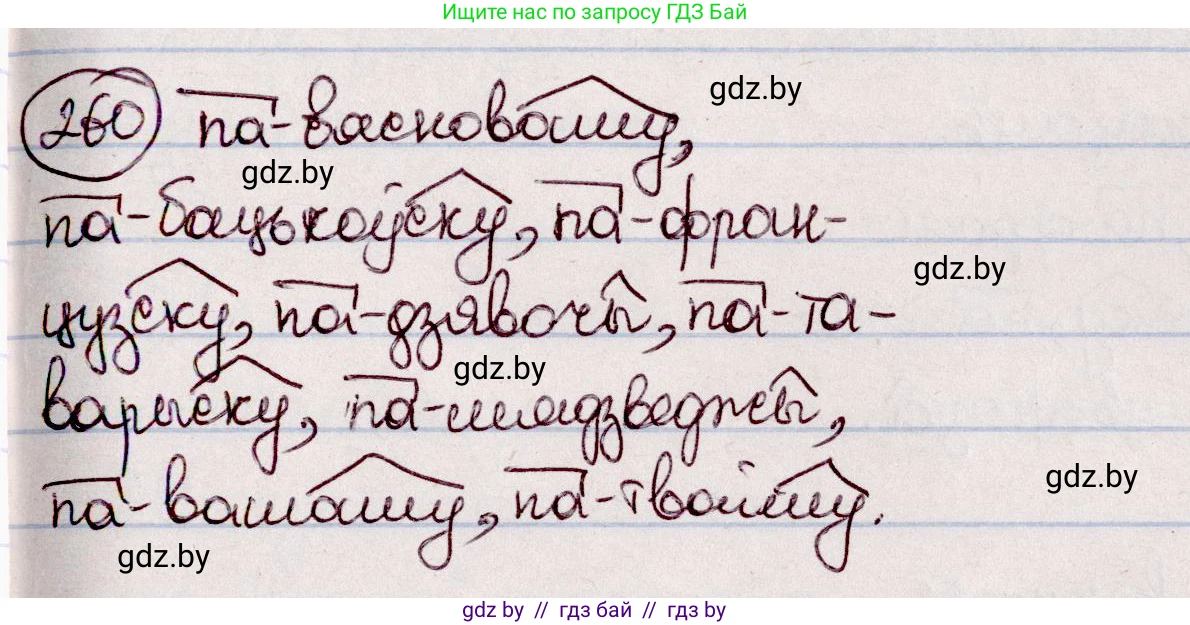 Ищите нас по запросу ГДЗ Бай
260 па-васковаму,
gdz.by
gdz.by
па-бацькоўску, па-фран-
gdz.by
цузску, па-дзявочы, па-та-
gdz.by
варыску, па-мядзведжы,
gdz.by
па-вашаму, па-твойму.
gdz.by
gdz by // гдз бай // гдз by